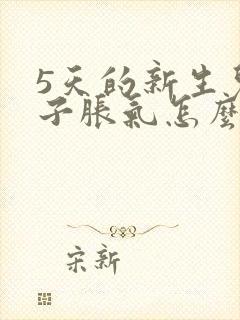 5天的新生
子脹氣怎麼
宋新